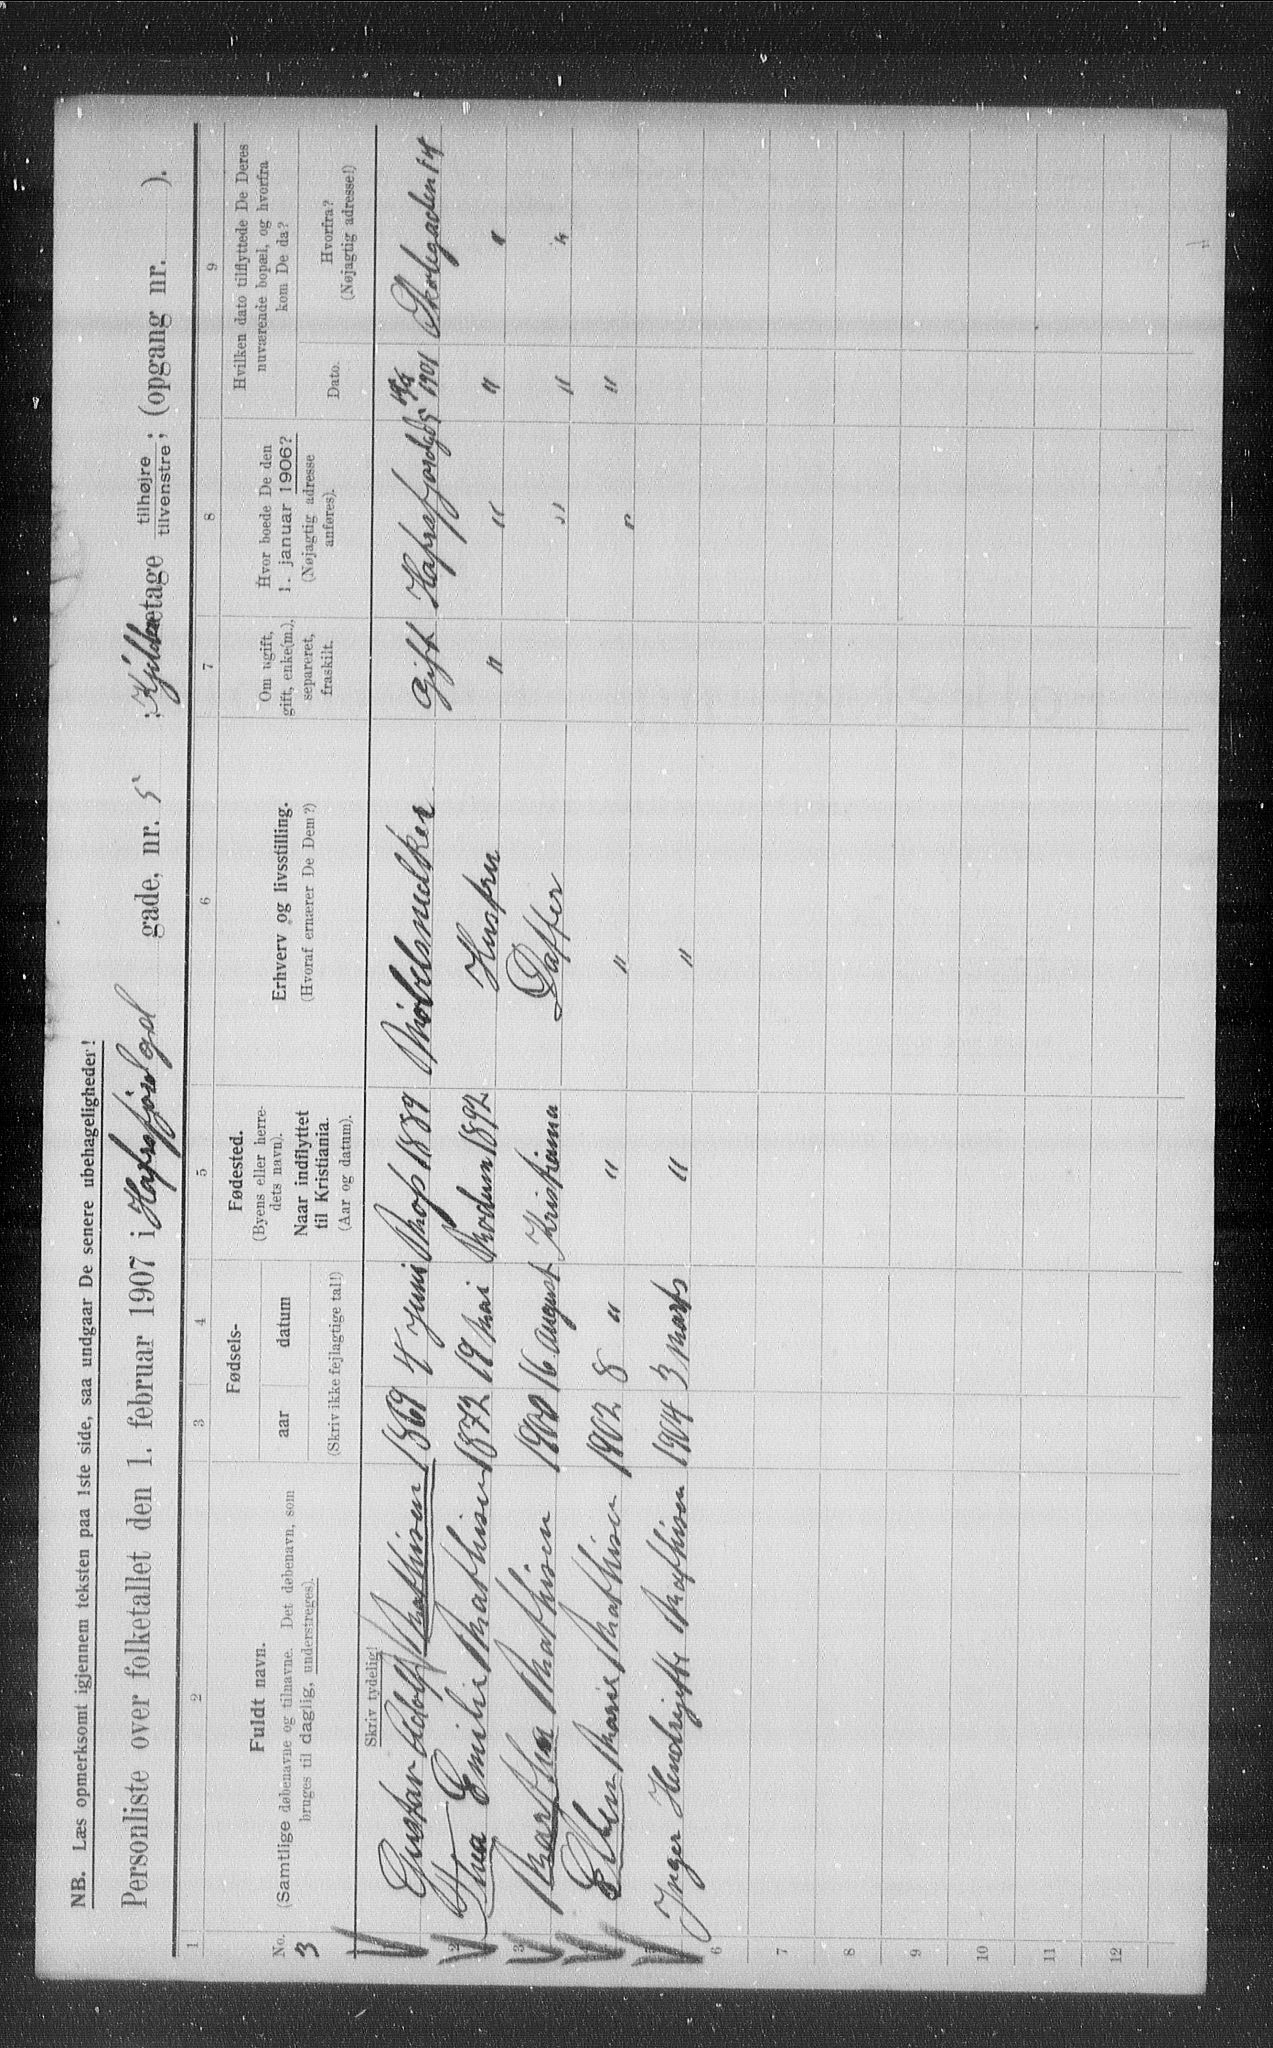 NB. Læs opmerksomt igjennem teksten paa 1ste side, saa undgaar De senere ubehageligheder!
Personliste over folketallet den 1. februar 1907 i Hafrsfjord gd gade, nr. 5 ; Kjelderetage tilhøjre tilvenstre; (opgang nr. ).
1 2 3 4 5 6 7 8 9
No. 3
Fuldt navn.
(Samtlige døbenavne og tilnavne. Det døbenavn, som
bruges til daglig, understreges).
Skriv tydelig!
Fødsels-
aar datum
(Skriv ikke fejlagtige tal!)
Fødested.
(Byens eller herre-
dets navn).
Naar indflyttet
til Kristiania.
(Aar og datum).
Erhverv og livsstilling.
(Hvoraf ernærer De Dem?)
Om ugift,
gift, enke(m.),
separeret,
fraskilt.
Hvor boede De den
1. januar 1906?
(Nøjagtig adresse
anføres).
Hvilken dato tilflyttede De Deres
nuværende bopæl, og hvorfra
kom De da?
Dato.
Hvorfra?
(Nøjagtig adresse!)
Gustav Adolf Mathisen 1869 4 juni Moss 1889 Møbelsnedker Gift Hafrsfjordgd 5 1901 Skolegaden 14
2 Tina Emilie Mathisen 1872 19 mai Modum 1892 Hustru " " " "
3 Martha Mathisen 1900 16 august Kristiania Datter " " "
Ellen Marie Mathisen 1902 8 " " " " "
Inger Hendrijette Mathisen 1904 3 marts " "
6
7
8
9
10
11
12